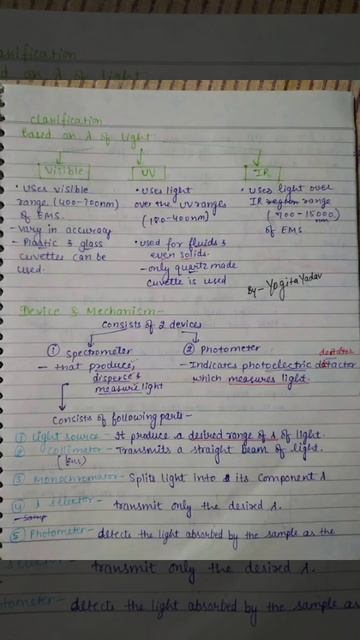 Clasification
based on λ of light
Visible
• Uses visible
range (400-700nm)
of EMS.
- Vary in accuracy
- Plastic & glass
cuvettes can be
used.
UV
• Uses light
over the UV ranges
(180-400nm)
• used for fluids &
even solids.
- only quartz made
cuvette is used
IR
• Uses light over
IR range
(700-15000
nm)
of EMS
By- Yogita Yadav
Device & Mechanism-
Consists of 2 devices
① Spectrometer
- that produce,
disperse &
measure light
② Photometer
- Indicates photoelectric detactor
which measures light.
Consists of following parts-
① Light source- It produce a desired range of λ of light.
② Collimator- Transmits a straight beam of light.
(lens)
③ Monochromator- Splits light into its component λ
④ λ selector- transmit only the desired λ.
⑤ Photometer- detects the light absorbed by the sample as the
transmit only the desired λ.
tometer- detects the light absorbed by the sample as